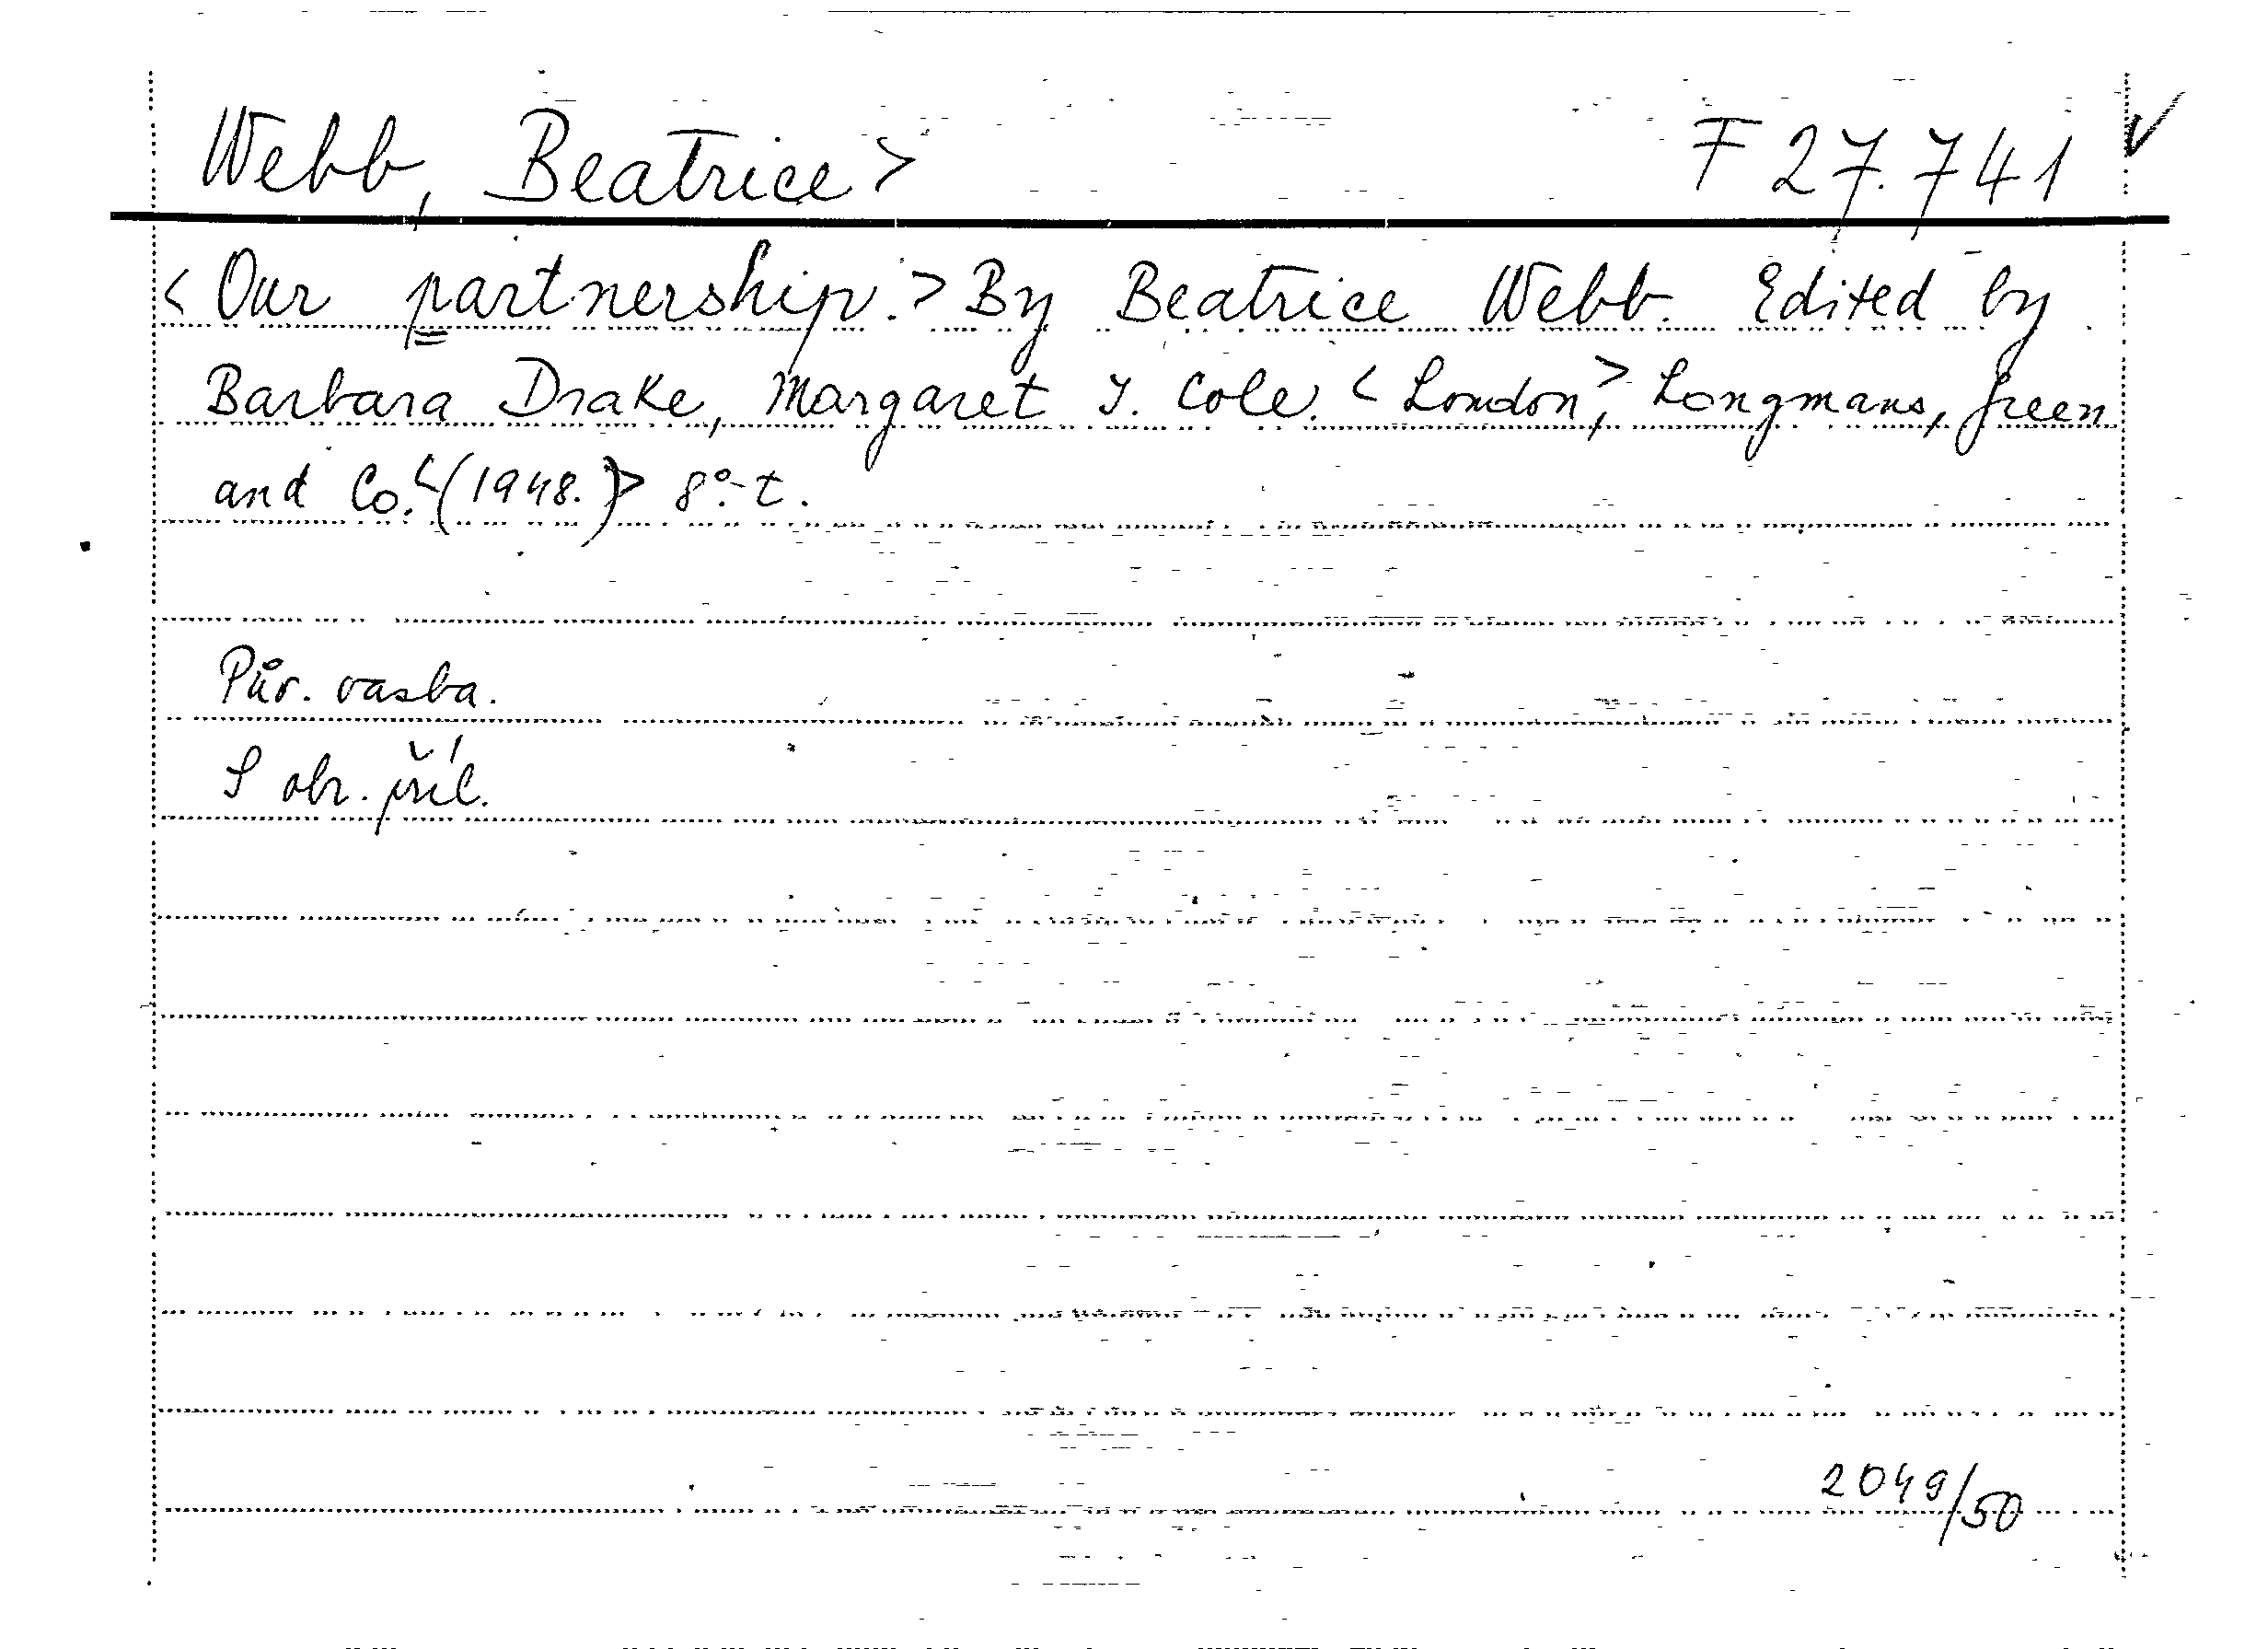 Webb, Beatrice> F 27.741 ✓
<Our partnership.> By Beatrice Webb. Edited by
Barbara Drake, Margaret I. Cole. <London,> Longmans, Green
and Co. <(1948.)> 8°.-t.
Pův. vasba.
S obr. příl.
2049/50